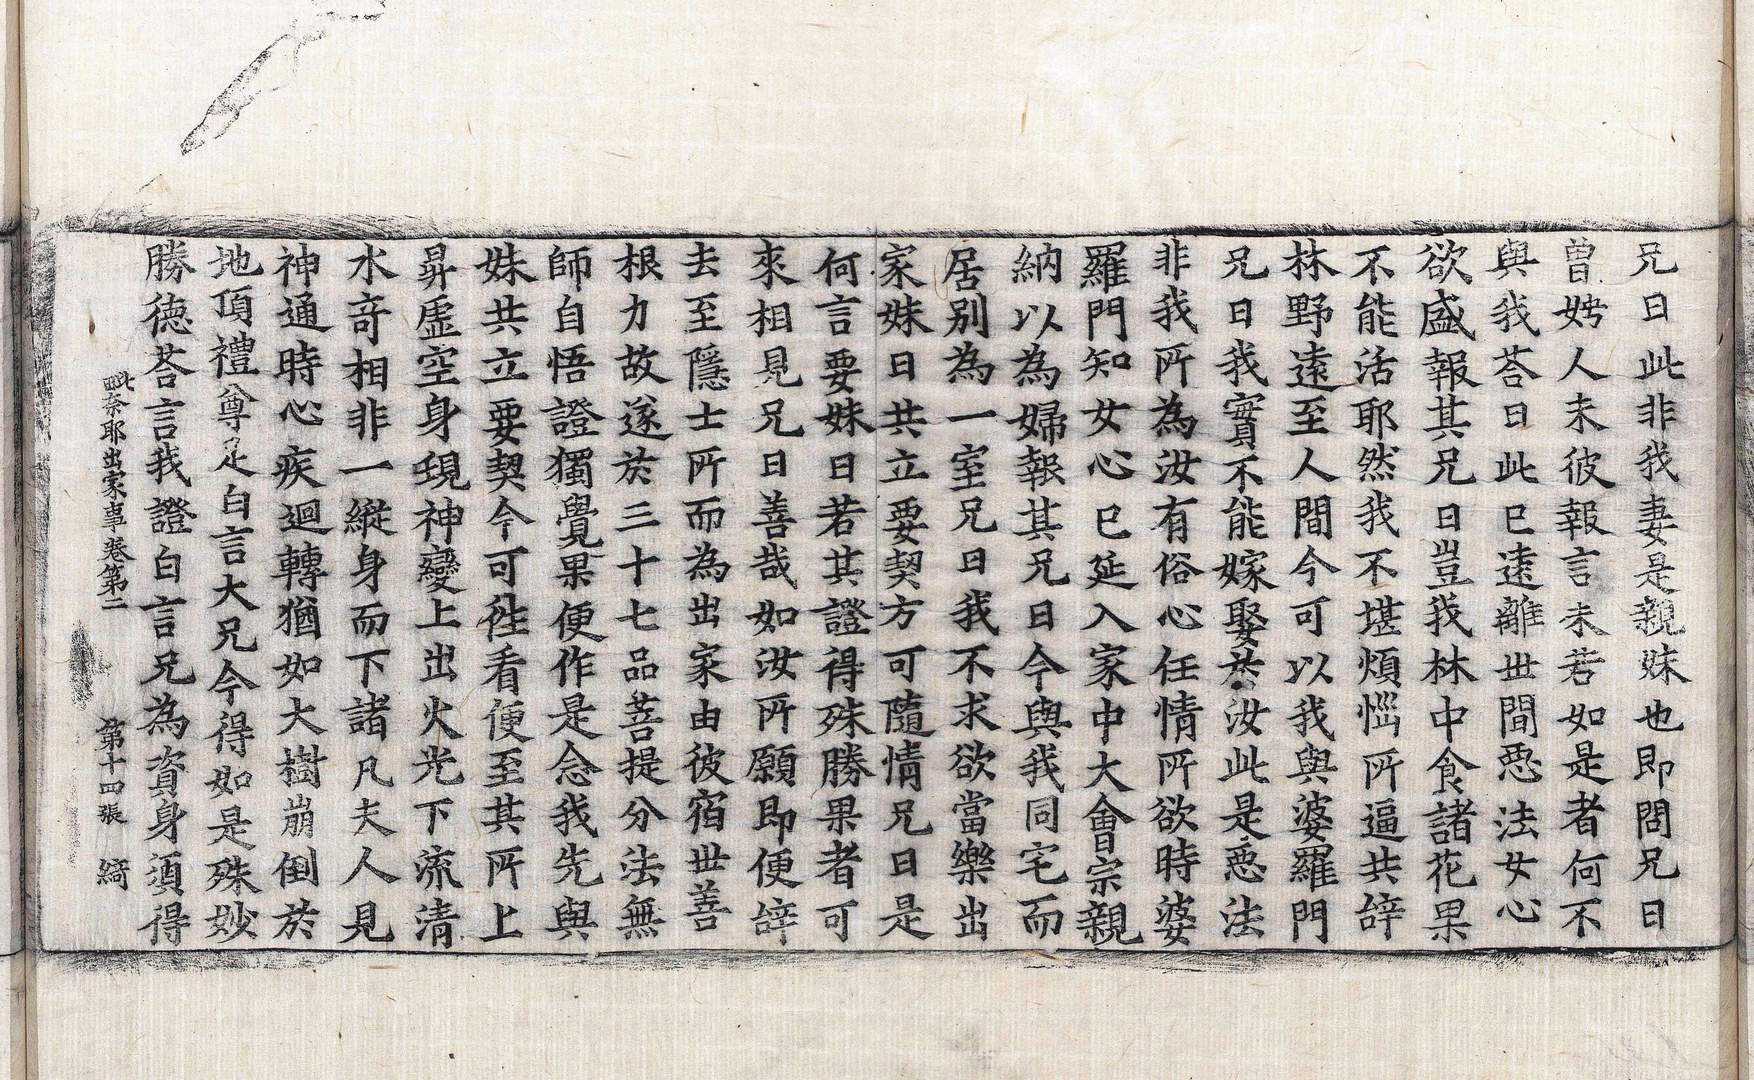 兄曰此非我妻是親妹也即問兄曰
曽娉人未彼報言未若如是者何不
與我荅曰此已遠離世間惡法女心
欲盛報其兄曰豈我林中食諸花果
不能活耶然我不堪煩惱所逼共辝
林野遠至人間今可以我與婆羅門
兄曰我實不能嫁娶共汝此是惡法
非我所為汝有俗心任情所欲時婆
羅門知女心已延入家中大會宗親
納以為婦報其兄曰今與我同宅而
居別為一室兄曰我不求欲當樂出
家妹曰共立要契方可隨情兄曰是
何言要妹曰若其證得殊勝果者可
來相見兄曰善哉如汝所願即便辝
去至隱士所而為出家由彼宿世善
根力故遂於三十七品菩提分法無
師自悟證獨覺果便作是念我先與
妹共立要契今可徃看便至其所上
昇虛空身現神變上出火光下流清
水竒相非一縱身而下諸凡夫人見
神通時心疾迴轉猶如大樹崩倒於
地頂禮尊足白言大兄今得如是殊妙
勝德荅言我證白言兄為資身須得
毗奈耶出家事卷第二 第十四張 綺